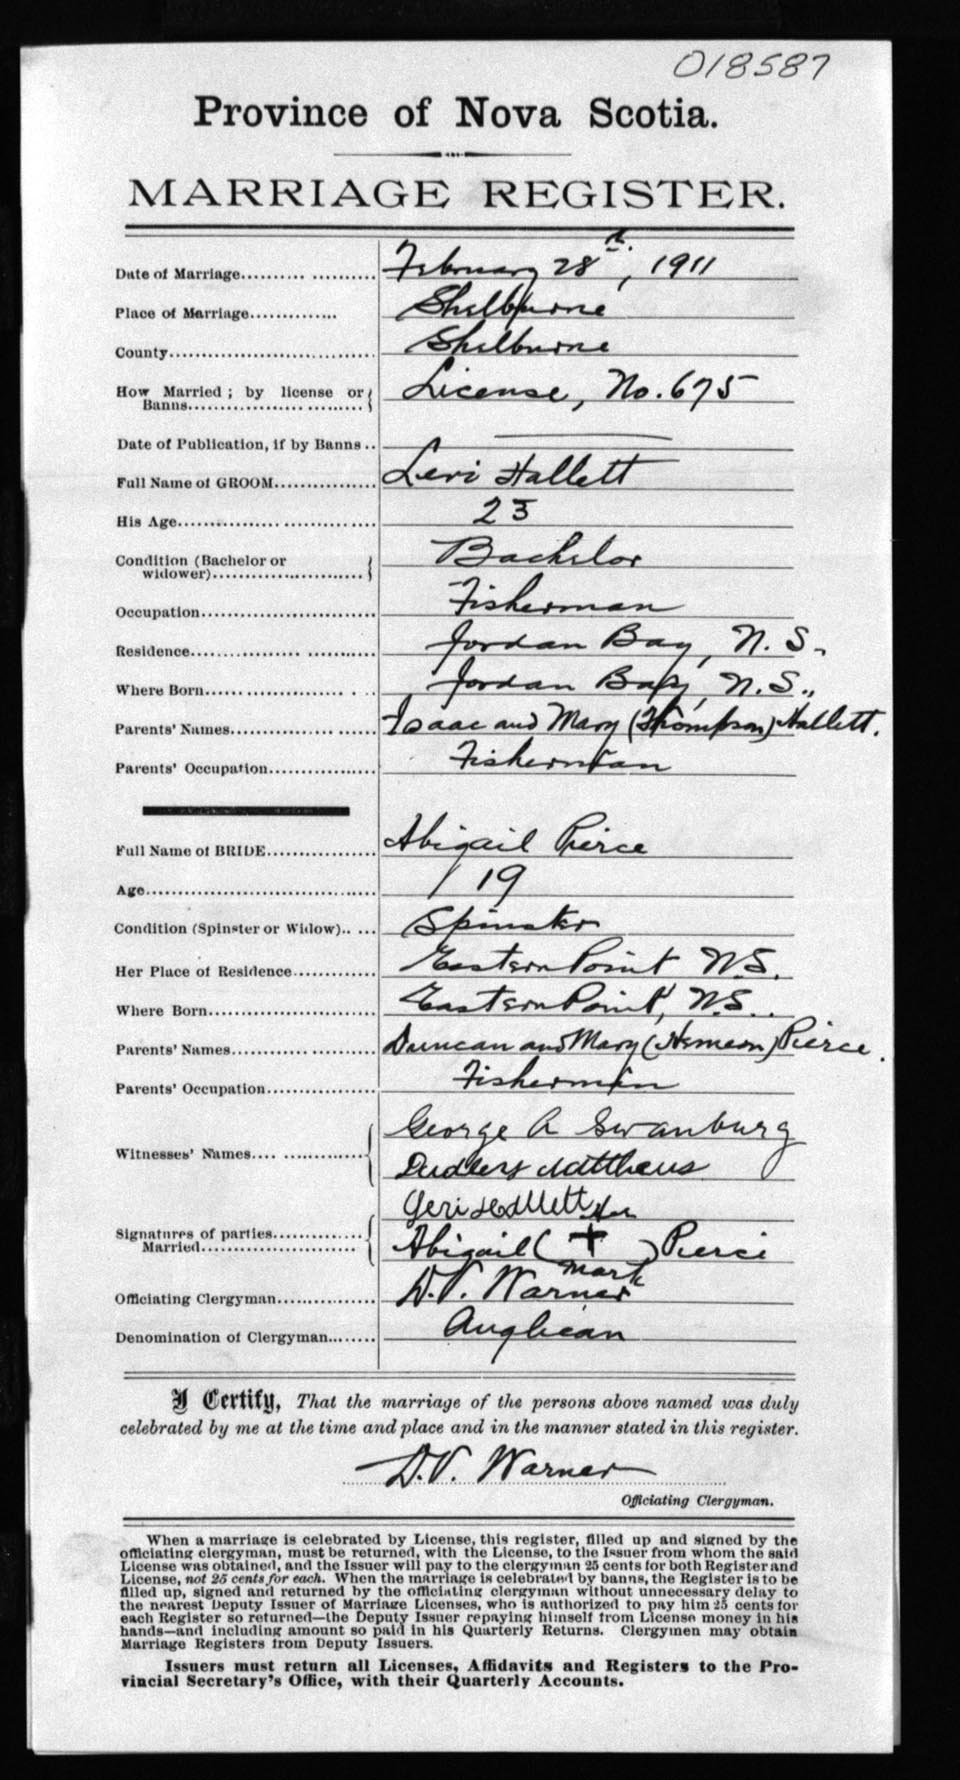 018587
Province of Nova Scotia.
MARRIAGE REGISTER.
Date of Marriage.......... ........... February 28th, 1911
Place of Marriage.............. Shelburne
County............................... Shelburne
How Married ; by license or
Banns.................. .......... License, No. 675
Date of Publication, if by Banns ..
Full Name of GROOM................ Levi Hallett
His Age................. ............... 23
Condition (Bachelor or
widower)........................ Bachelor
Occupation........................... Fisherman
Residence................ ............ Jordan Bay, N. S.
Where Born...... ............... . .. Jordan Bay, N. S.,
Parents' Names.............. ....... Isaac and Mary (Thompson) Hallett.
Parents' Occupation................ Fisherman
Full Name of BRIDE................ Abigail Pierce
Age.................................... 19
Condition (Spinster or Widow).. ... Spinster
Her Place of Residence............. Eastern Point N.S.
Where Born.......................... Eastern Point, N.S..
Parents' Names............ .......... Duncan and Mary (Hemeon) Pierce.
Parents' Occupation................ Fisherman
George A Swanburg
Witnesses' Names.... ...............
Dudley Matthews
Levi Hallett her
Signatures of parties..............
Married....................... Abigail ( + ) Pierce
mark
Officiating Clergyman............... D.V. Warner
Denomination of Clergyman....... Anglican
I Certify, That the marriage of the persons above named was duly
celebrated by me at the time and place and in the manner stated in this register.
D.V. Warner
Officiating Clergyman.
When a marriage is celebrated by License, this register, filled up and signed by the
officiating clergyman, must be returned, with the License, to the Issuer from whom the said
License was obtained, and the Issuer will pay to the clergyman 25 cents for both Register and
License, not 25 cents for each. When the marriage is celebrated by banns, the Register is to be
filled up, signed and returned by the officiating clergyman without unnecessary delay to
the nearest Deputy Issuer of Marriage Licenses, who is authorized to pay him 25 cents for
each Register so returned—the Deputy Issuer repaying himself from License money in his
hands—and including amount so paid in his Quarterly Returns. Clergymen may obtain
Marriage Registers from Deputy Issuers.
Issuers must return all Licenses, Affidavits and Registers to the Pro-
vincial Secretary's Office, with their Quarterly Accounts.